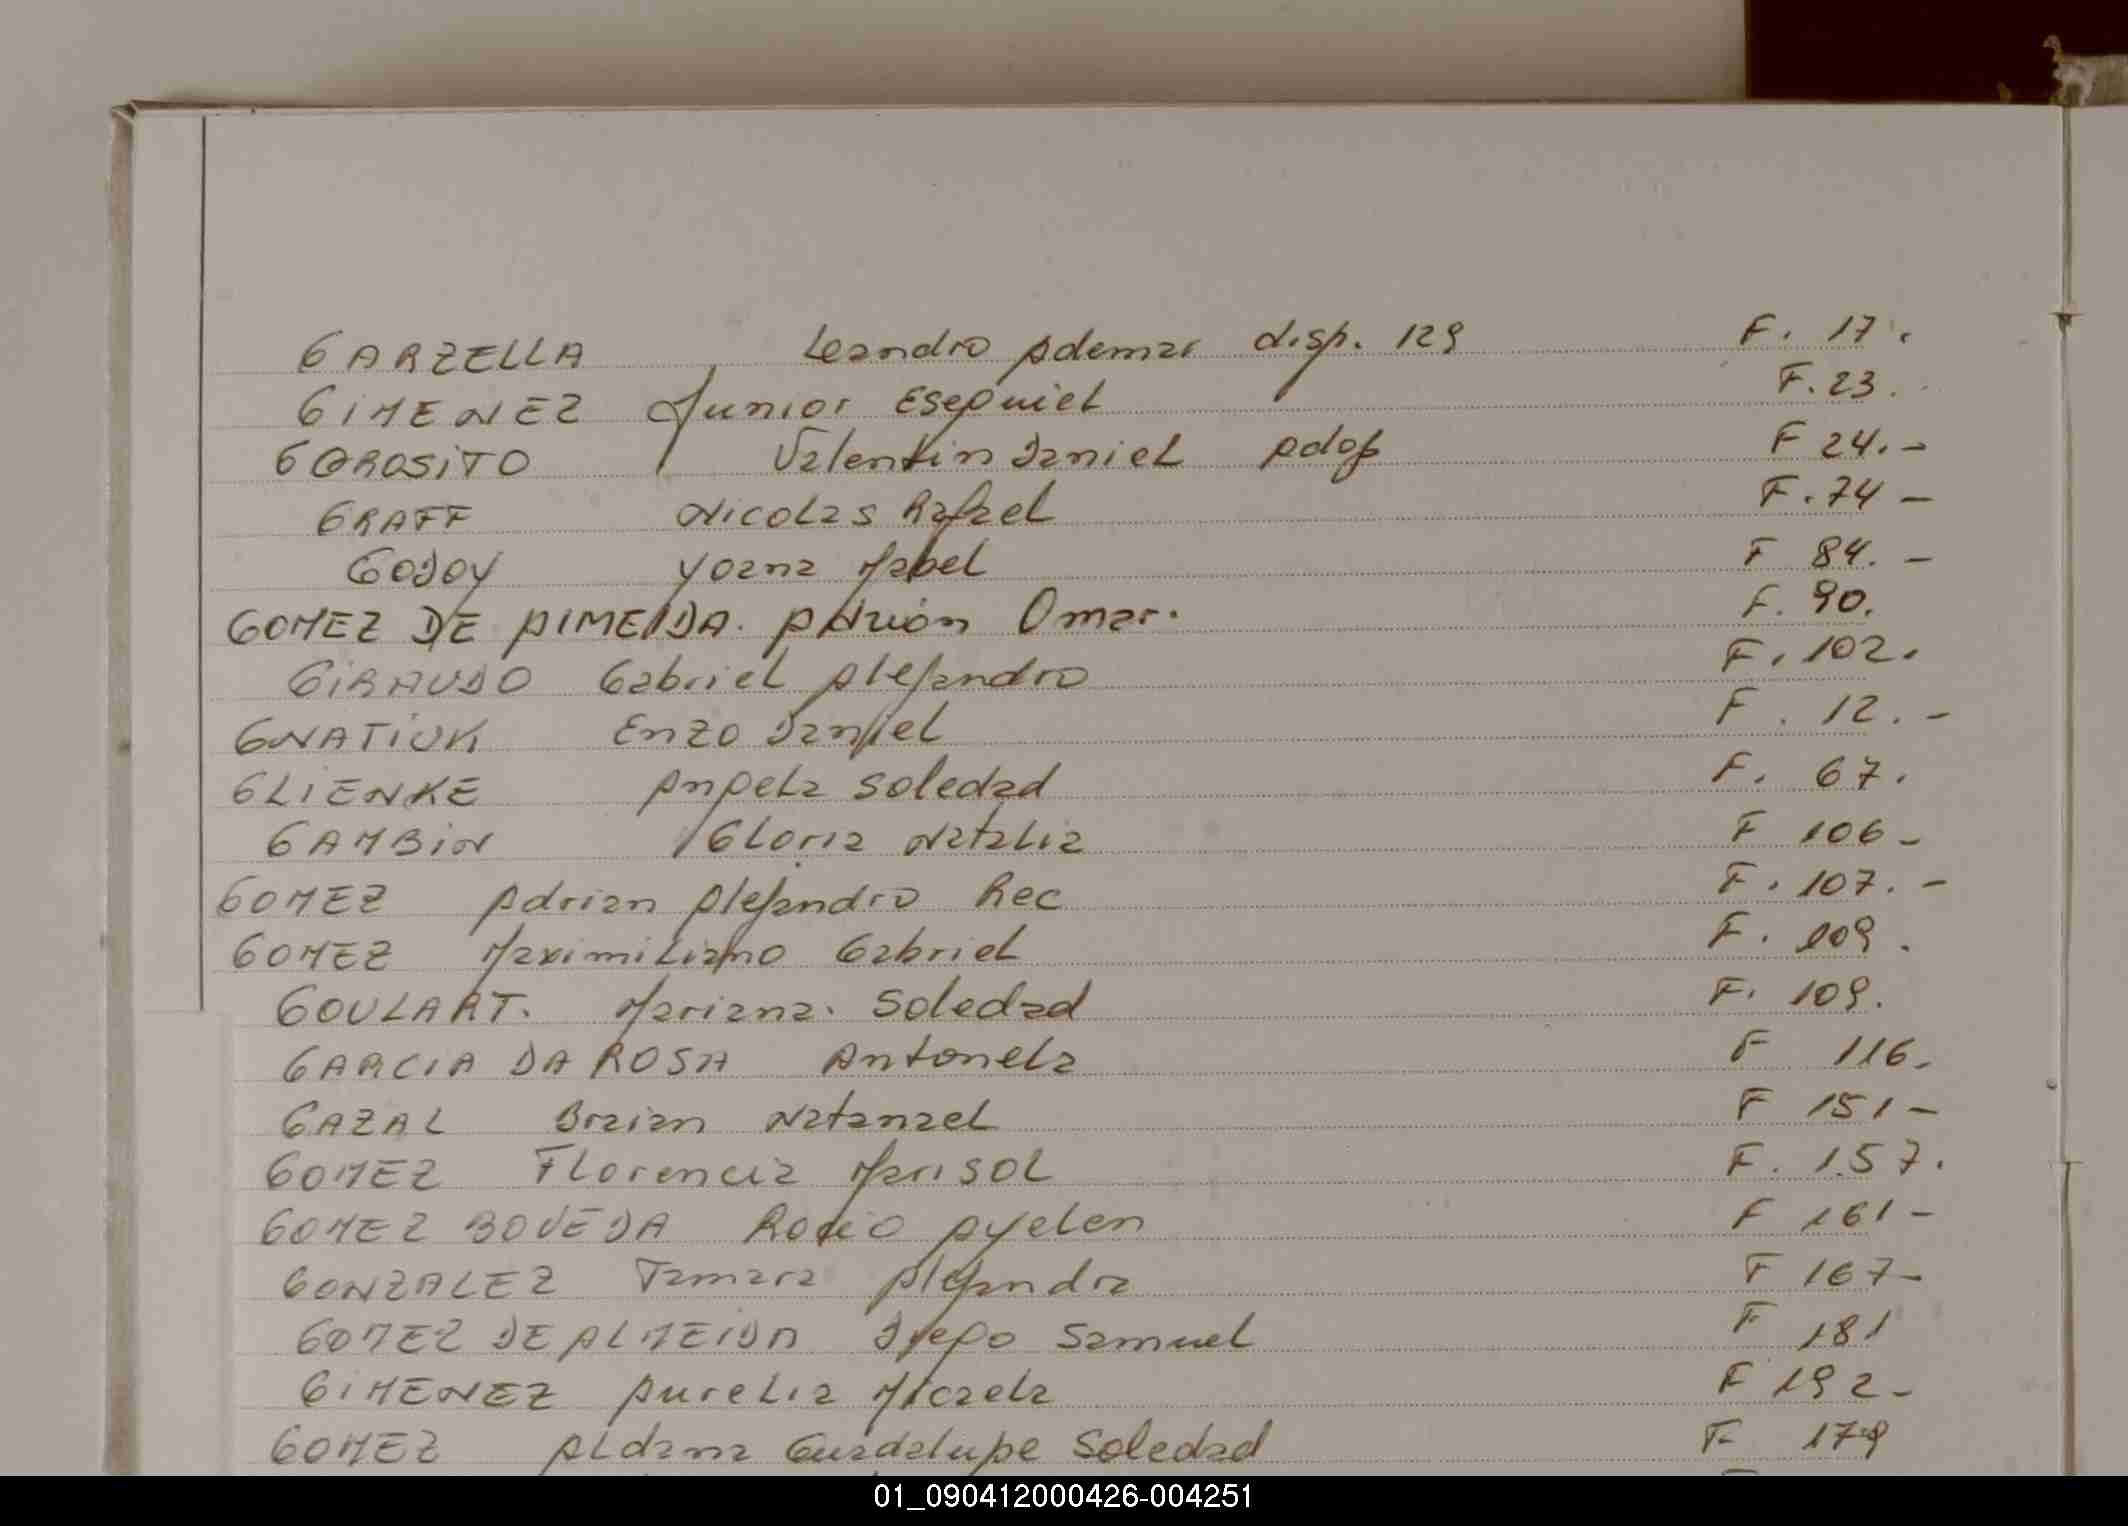 GARZELLA Leandro Ademar disp. 129 F. 17.
GIMENEZ Junior Esequiel F. 23.
GOROSITO Valentin Daniel Adop F 24.-
GRAFF Nicolas Rafael F. 74 -
GODOY Yoana Mabel F 84. -
GOMEZ DE ALMEIDA. Adrión Omar. F. 90.
GIRAUDO Gabriel Alejandro F. 102.
GNATIUK Enzo Daniel F. 12. -
GLIENKE Angela Soledad F. 67.
GAMBIN Gloria Natalia F 106 -
GOMEZ Adrian Alejandro Rec F. 107. -
GOMEZ Maximiliano Gabriel F. 109.
GOULART. Mariana. Soledad F. 109.
GARCIA DA ROSA Antonela F 116.
GAZAL Braian Natanael F 151 -
GOMEZ Florencia Marisol F. 157.
GOMEZ BOVEDA Rocio Ayelen F 161 -
GONZALEZ Tamara Alejandra F 167 -
GOMEZ DE ALMEIDA Diego Samuel F 181
GIMENEZ Aurelia Micaela F 192 -
GOMEZ Aldana Guadalupe Soledad F 179
01_090412000426-004251